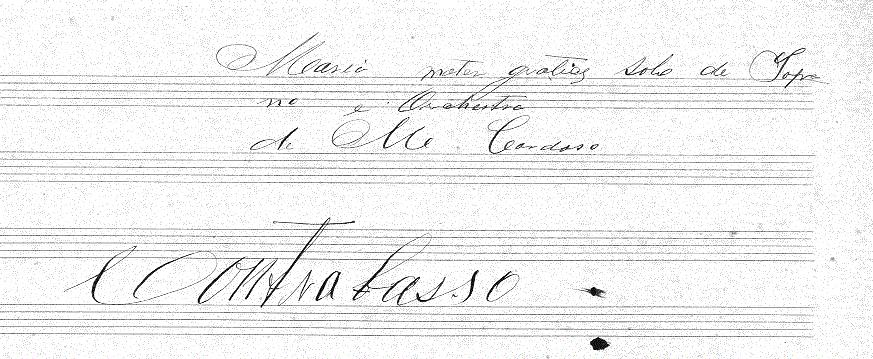 Maria mater gratiæ solo de Sopra
no e Orchestra
de Me Cardoso
Contrabasso